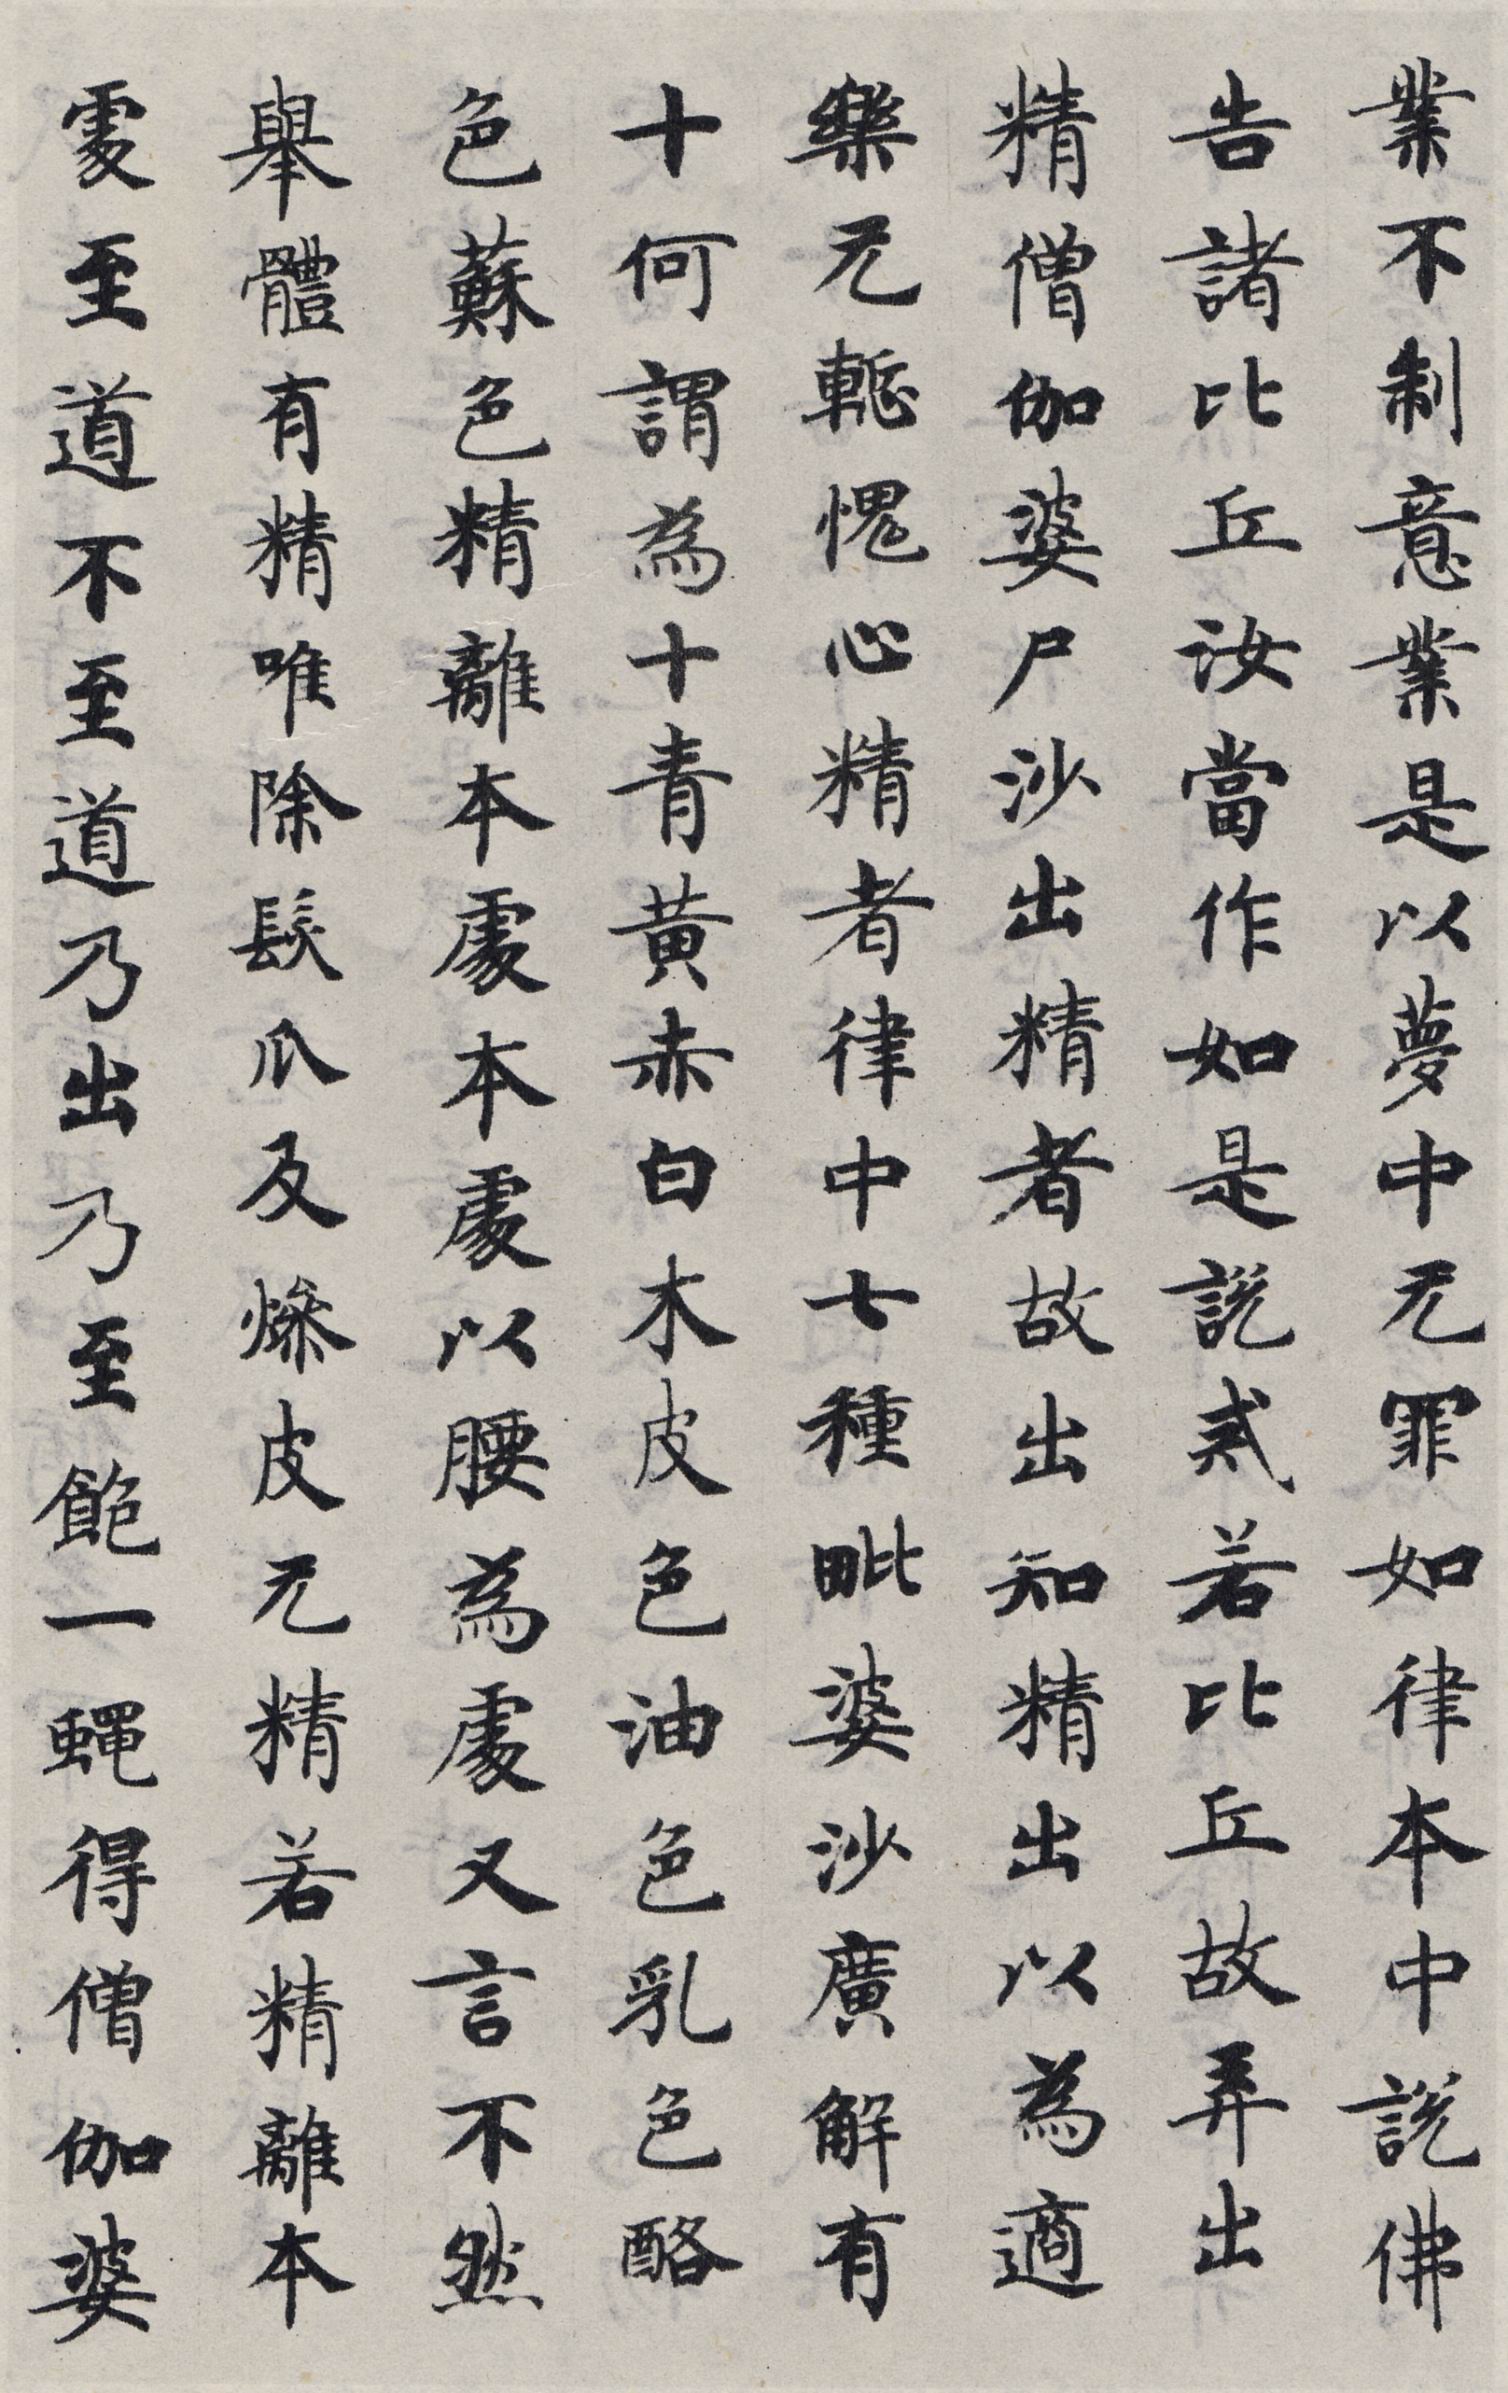 業不制意業是以夢中无罪如律本中説佛
告諸比丘汝當作如是説戒若比丘故弄出
精僧伽婆尸沙出精者故出知精出以為適
樂无慙愧心精者律中七種毗婆沙廣解有
十何謂為十青黃赤白木皮色油色乳色酪
色蘇色精離本處本處以腰為處又言不然
舉體有精唯除髮爪及燥皮无精若精離本
處至道不至道乃出乃至飽一蠅得僧伽婆